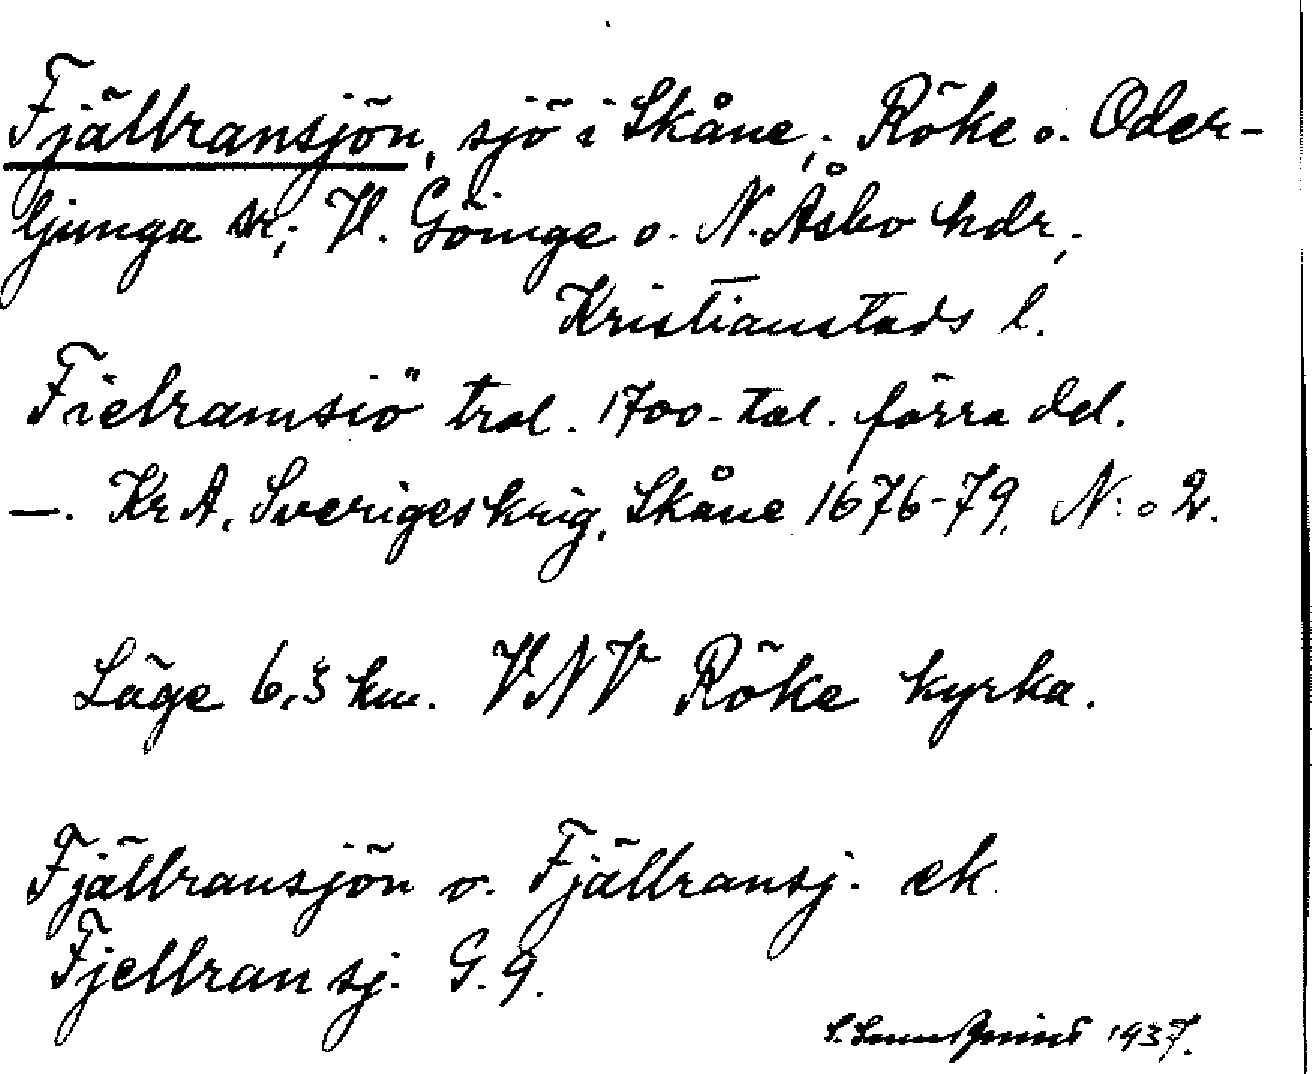 Fjällransjön, sjö i Skåne; Röke o. Oder-
ljunga sr; V. Göinge o. N. Åsbo hdr,
Kristianstads l.
Fielramsiö trol. 1700-tal. förra del.
—. KrA, Sveriges krig, Skåne 1676-79, N:o 2.
Läge 6,3 km. VNV Röke kyrka.
Fjällransjön o. Fjällransj. ek
Fjellransj. G. 9.
1937.